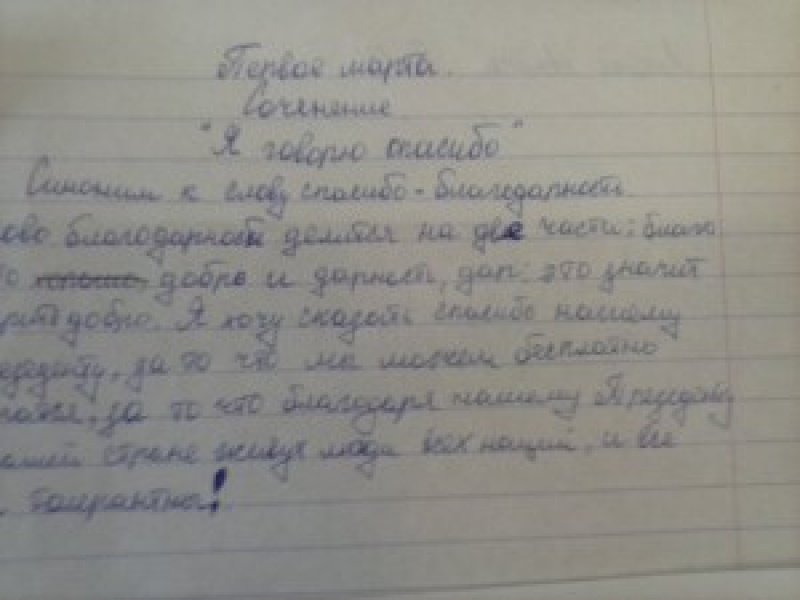 Первое марта.
Соченение
"Я говорю спасибо"
Синоним к слову спасибо - благодарность
ово благодарность делится на две части: благо
то добро и дарность, дар: это значит
рить добро. Я хочу сказать спасибо нашему
езеденту, за то что мы можем бесплатно
за то что благодаря нашему Президенту
ашей стране живут люди всех наций, и все
толерантны!